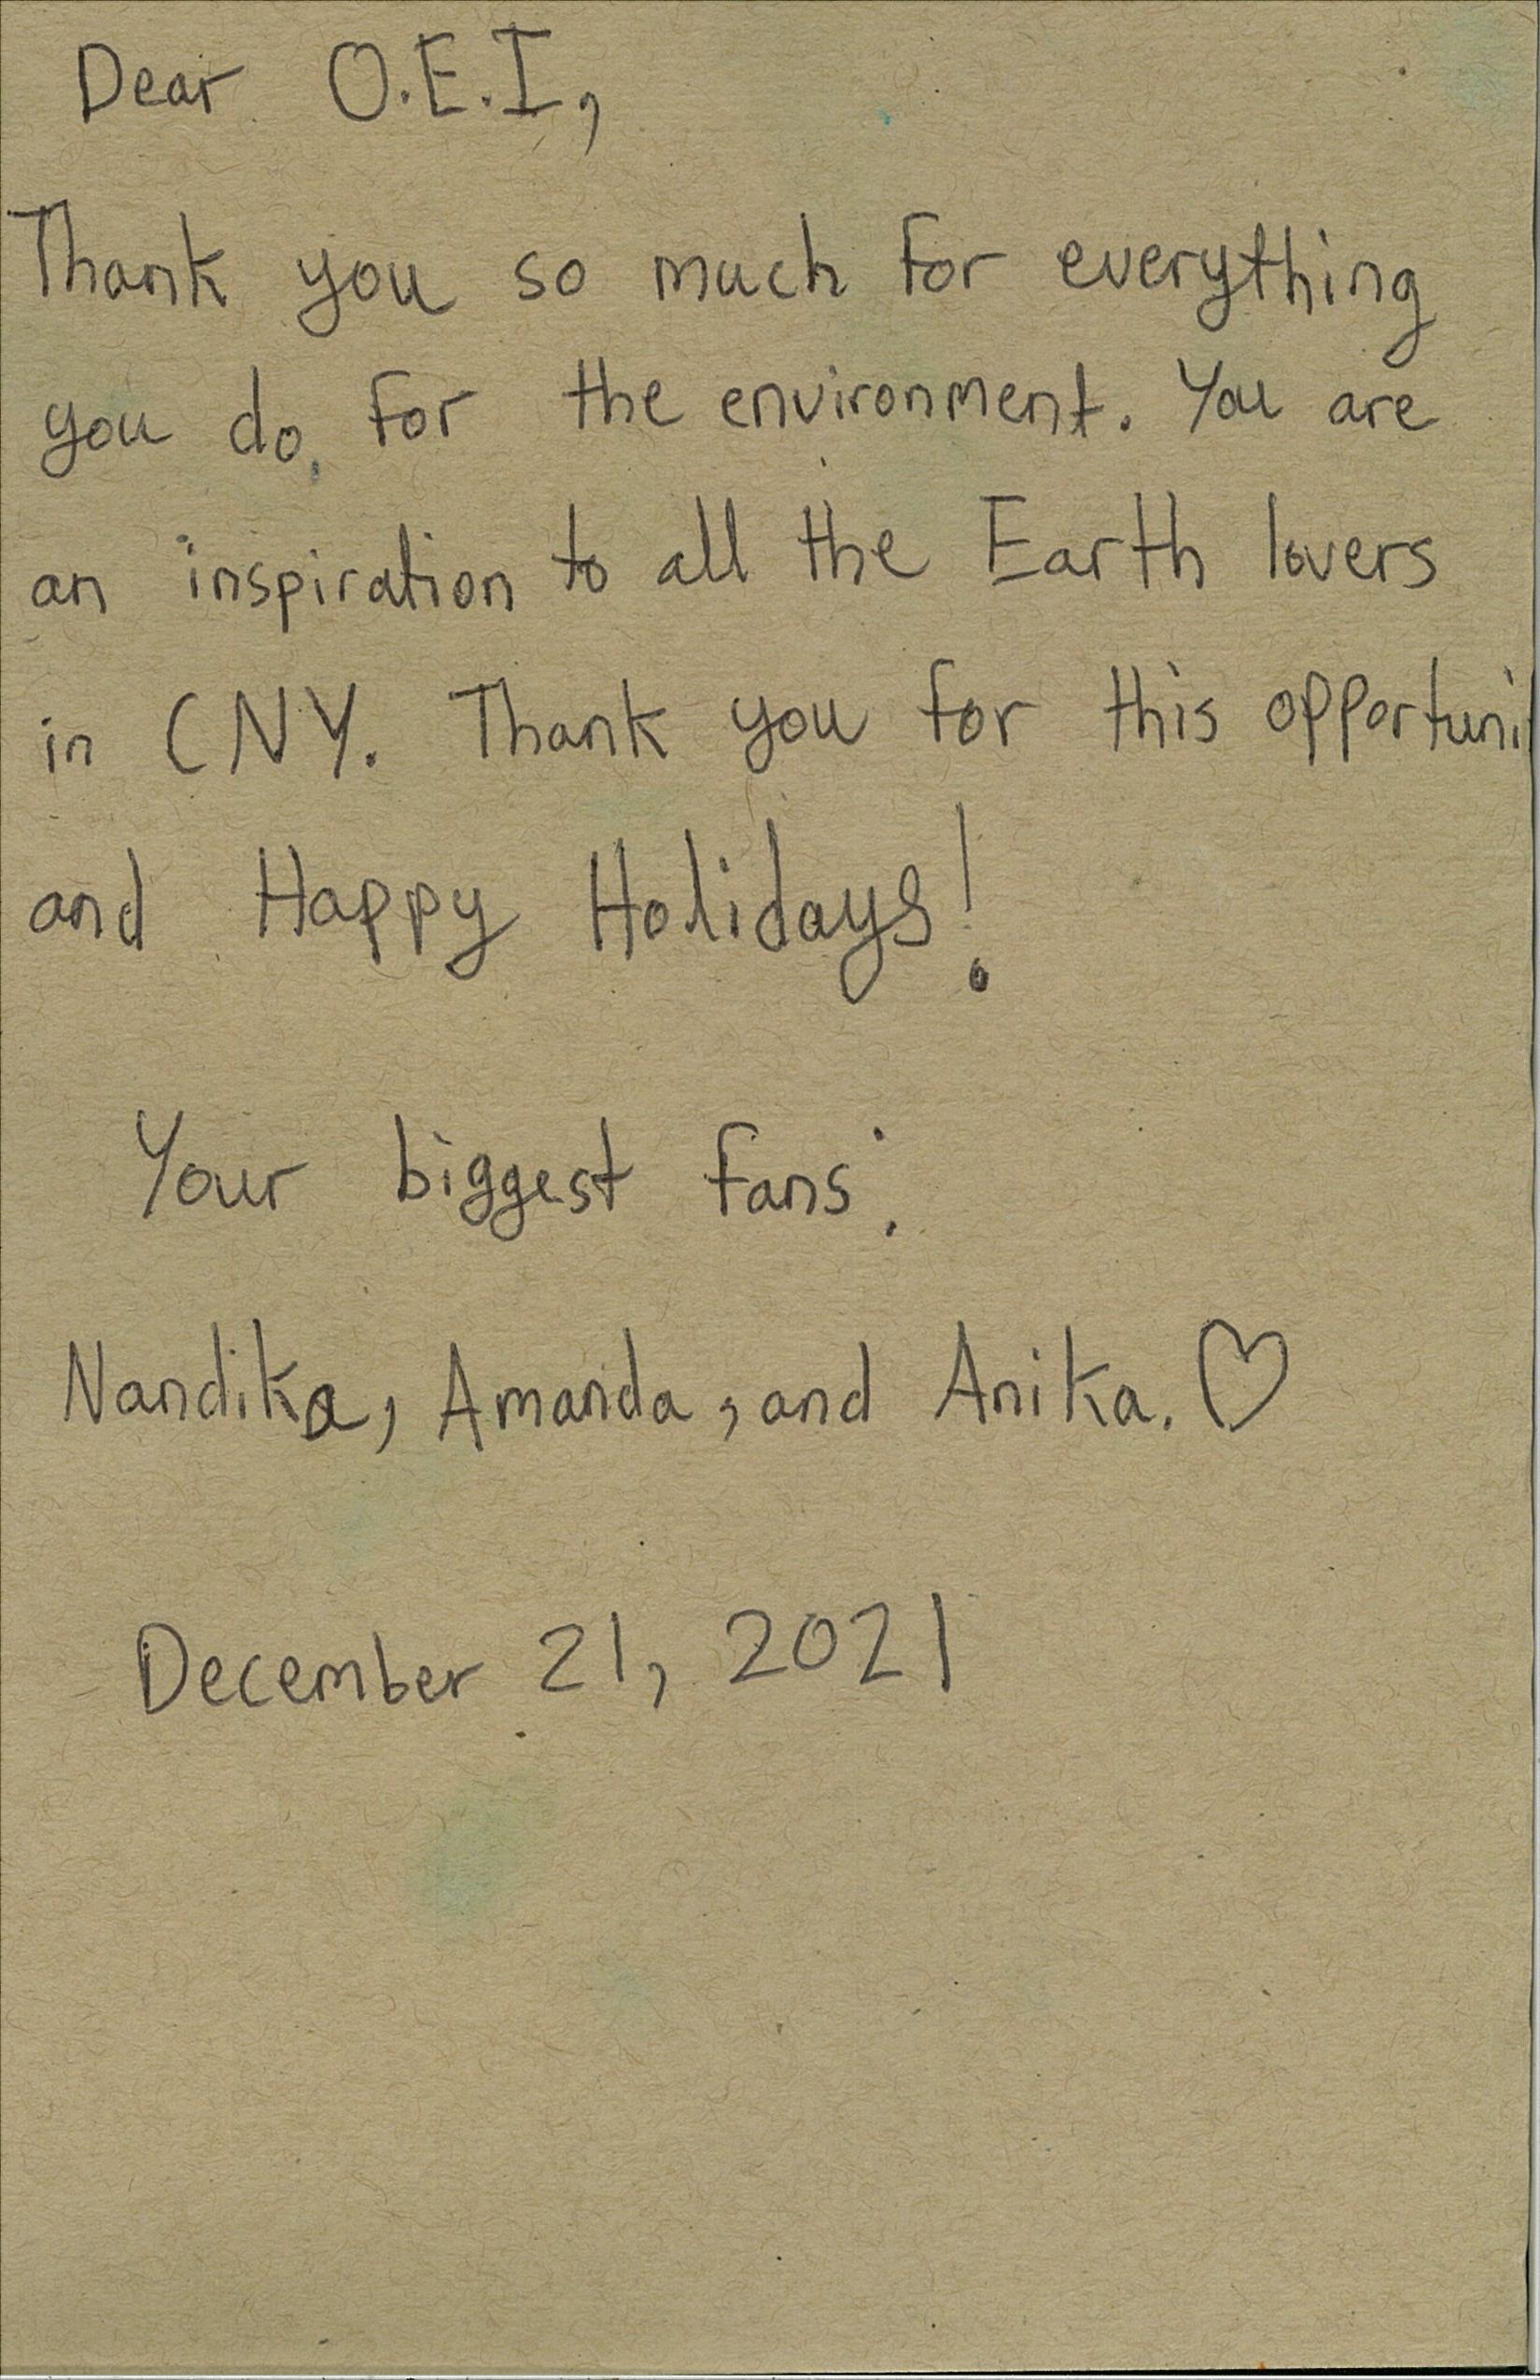 Dear O.E.I,
Thank you so much for everything
you do for the environment. You are
an inspiration to all the Earth lovers
in CNY. Thank you for this opportuni
and Happy Holidays!
Your biggest fans:
Nandika, Amanda, and Anika. ♡
December 21, 2021